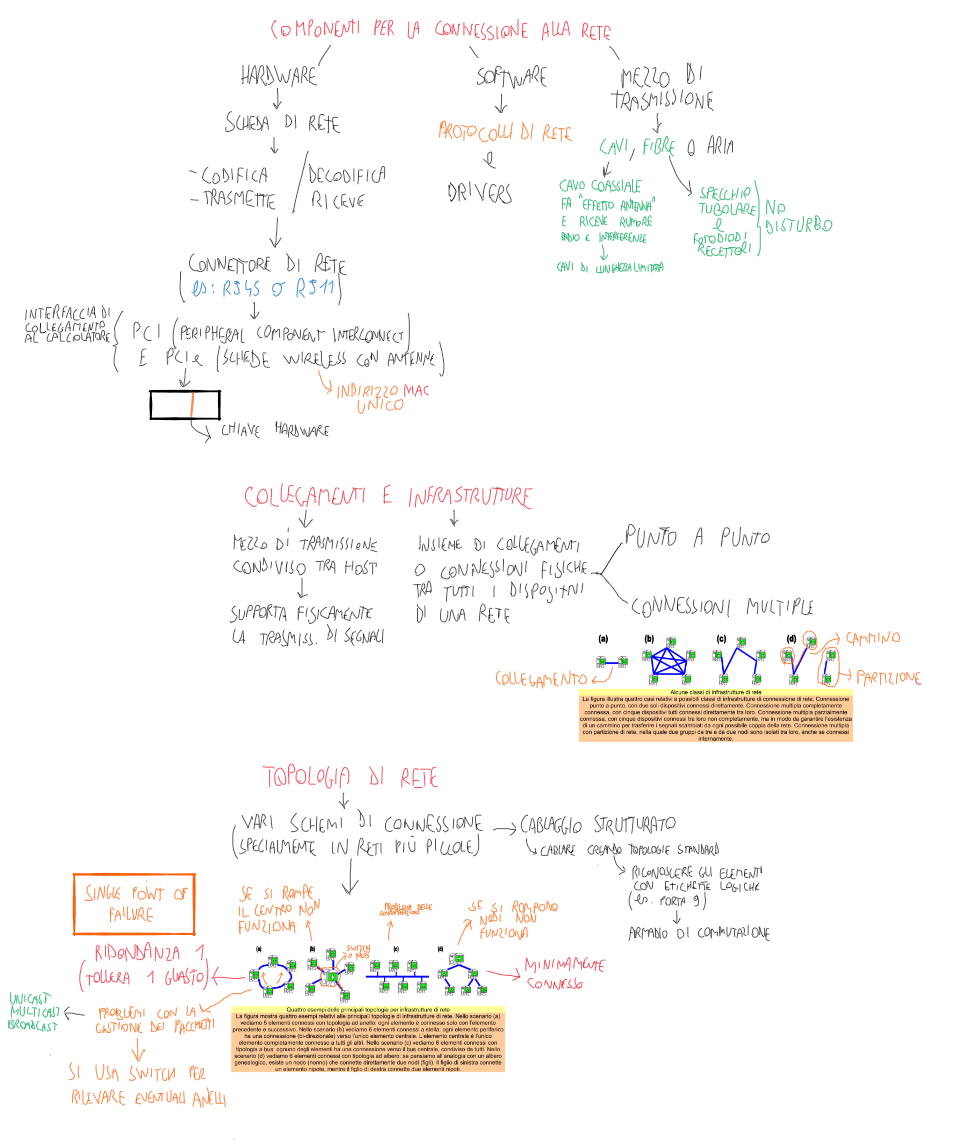 COMPONENTI PER LA CONNESSIONE ALLA RETE
HARDWARE
SCHEDA DI RETE
- CODIFICA / DECODIFICA
- TRASMETTE / RICEVE
CONNETTORE DI RETE
(es: RJ45 O RJ11)
INTERFACCIA DI
COLLEGAMENTO
AL CALCOLATORE
PCI (PERIPHERAL COMPONENT INTERCONNECT)
E PCIe (SCHEDE WIRELESS CON ANTENNE)
INDIRIZZO MAC
UNICO
CHIAVE HARDWARE
SOFTWARE
PROTOCOLLI DI RETE
e
DRIVERS
MEZZO DI
TRASMISSIONE
CAVI, FIBRE O ARIA
CAVO COASSIALE
FA "EFFETTO ANTENNA"
E RICEVE RUMORE
RADIO E INTERFERENZE
CAVI DI LUNGHEZZA LIMITATA
SPECCHIO
TUBOLARE
e
FOTODIODI
RECETTORI
NO
DISTURBO
COLLEGAMENTI E INFRASTRUTTURE
MEZZO DI TRASMISSIONE
CONDIVISO TRA HOST
SUPPORTA FISICAMENTE
LA TRASMISS. DI SEGNALI
INSIEME DI COLLEGAMENTI
O CONNESSIONI FISICHE
TRA TUTTI I DISPOSITIVI
DI UNA RETE
PUNTO A PUNTO
CONNESSIONI MULTIPLE
(a) (b) (c) (d)
CAMMINO
COLLEGAMENTO
PARTIZIONE
Alcune classi di infrastrutture di rete
La figura illustra quattro casi relativi a possibili classi di infrastrutture di connessione di rete. Connessione
punto a punto, con due soli dispositivi connessi direttamente. Connessione multipla completamente
connessa, con cinque dispositivi tutti connessi direttamente tra loro. Connessione multipla parzialmente
connessa, con cinque dispositivi connessi tra loro non completamente, ma in modo da garantire l'esistenza
di un cammino per trasferire i segnali scambiati da ogni possibile coppia della rete. Connessione multipla
con partizione di rete, nella quale due gruppi da tre e da due nodi sono isolati tra loro, anche se connessi
internamente.
TOPOLOGIA DI RETE
VARI SCHEMI DI CONNESSIONE
(SPECIALMENTE IN RETI PIÙ PICCOLE)
CABLAGGIO STRUTTURATO
CABLARE CREANDO TOPOLOGIE STANDARD
RICONOSCERE GLI ELEMENTI
CON ETICHETTE LOGICHE
(es. PORTA 9)
ARMADIO DI COMMUTAZIONE
SINGLE POINT OF
FAILURE
SE SI ROMPE
IL CENTRO NON
FUNZIONA
PROBLEMA DELLE
SE SI ROMPONO
NODI NON
FUNZIONA
RIDONDANZA 1
(TOLLERA 1 GUASTO)
(a) (b) (c) (d)
SWITCH
O HUB
MINIMAMENTE
CONNESSO
UNICAST
MULTICAST
BROADCAST
PROBLEMI CON LA
GESTIONE DEI PACCHETTI
SI USA SWITCH PER
RILEVARE EVENTUALI ANELLI
Quattro esempi delle principali topologie per infrastrutture di rete
La figura mostra quattro esempi relativi alle principali topologie di infrastrutture di rete. Nello scenario (a)
vediamo 6 elementi connessi con topologia ad anello: ogni elemento è connesso solo con l'elemento
precedente e successivo. Nello scenario (b) vediamo 6 elementi connessi a stella: ogni elemento periferico
ha una connessione (bi-direzionale) verso l'unico elemento centrale. L'elemento centrale è l'unico
elemento completamente connesso a tutti gli altri. Nello scenario (c) vediamo 6 elementi connessi con
tipologia a bus: ognuno degli elementi ha una connessione verso il bus centrale, condiviso da tutti. Nello
scenario (d) vediamo 6 elementi connessi con tipologia ad albero: se pensiamo all'analogia con un albero
genealogico, esiste un nodo (nonno) che connette direttamente due nodi (figli). Il figlio di sinistra connette
un elemento nipote, mentre il figlio di destra connette due elementi nipoti.